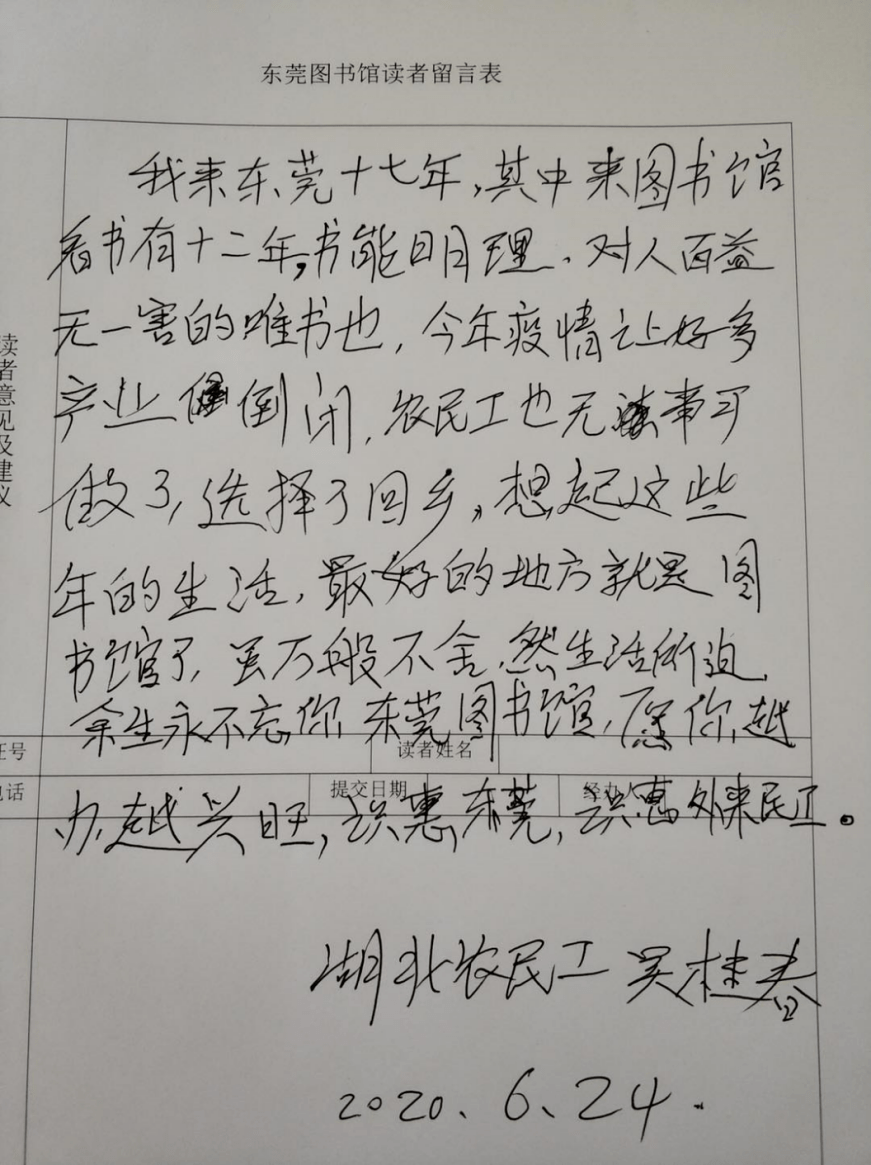 东莞图书馆读者留言表
我来东莞十七年,其中来图书馆
看书有十二年,书能明理、对人百益
无一害的唯书也,今年疫情让好多
产业倒闭,农民工也无事可
做了,选择了回乡,想起这些
年的生活,最好的地方就是图
书馆了,虽万般不舍,然生活所迫,
余生永不忘你,东莞图书馆,愿你越
办越兴旺,识惠东莞,识惠外来民工。
湖北农民工 吴桂春
2020、6、24.
读者意见及建议
证号
读者姓名
电话
提交日期
经办人